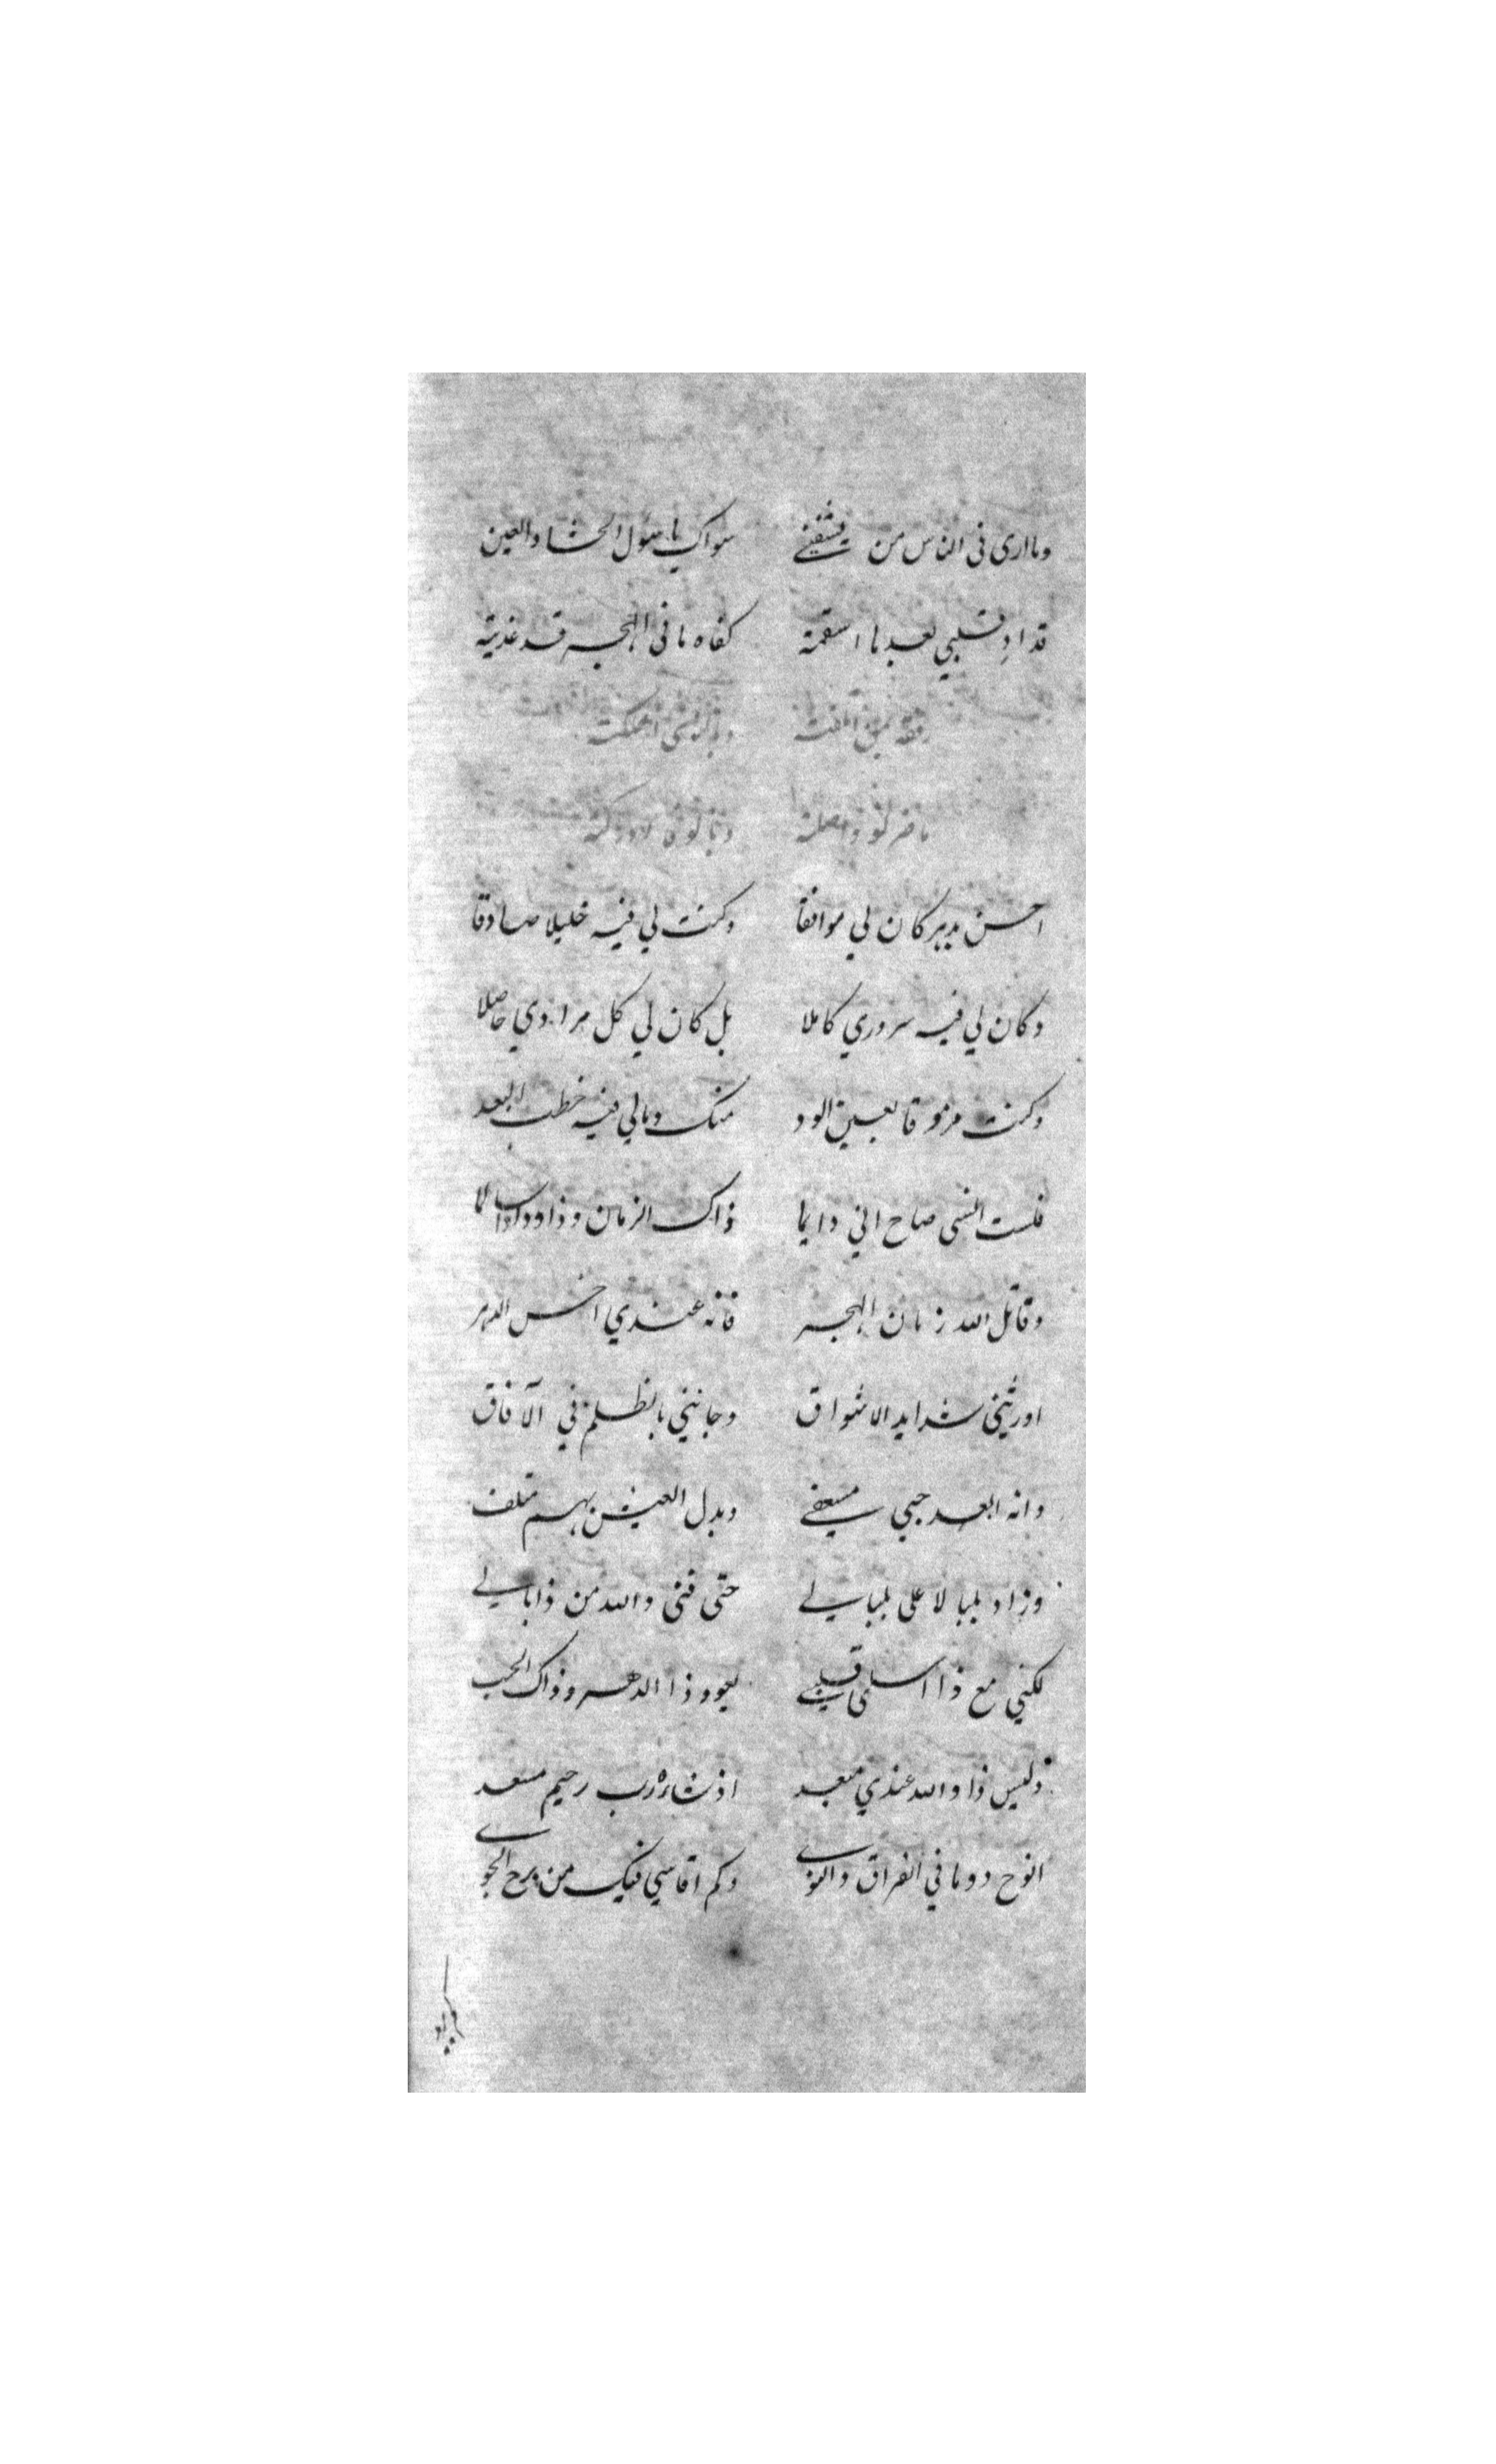 وما ارى فى الناس من يشفينے سواك يا سؤل الحشا والعين
قد ادِ قلبي بعد ما اسقمته كفاه ما فى الهجر قد غديته
رفقه اتلفته وبالنوى اهلكته
ما ضر لو واصلته
احسن بدهر كان لي موافقا وكنت لي فيه خليلا صادقا
وكان لي فيه سروري كاملا بل كان لي كل مرادي حاصلا
وكنت مرموقا بعين الود منك ومالي فيه خطب البعد
فلست انسى صاح اني دايما ذاك الزمان وذا ودادا سالما
وقاتل الله زمان الهجر فانه عندي اخس الدهر
اورثني شدايد الاشواق وجانني بالظلم في الآفاق
وانه ابعد حبي مسعفے وبدل العيش بهم متلف
وزاد بلبالا على بلبالے حتى فنى والله من ذا بالے
لكني مع ذا اسلى قلبے يعود ذا الدهر وذاك الحب
وليس ذا والله عندي مبعد اذ شاءه رب رحيم مسعد
انوح دوما في الفراق والنوے وكم اقاسي فيك من برح الجوے